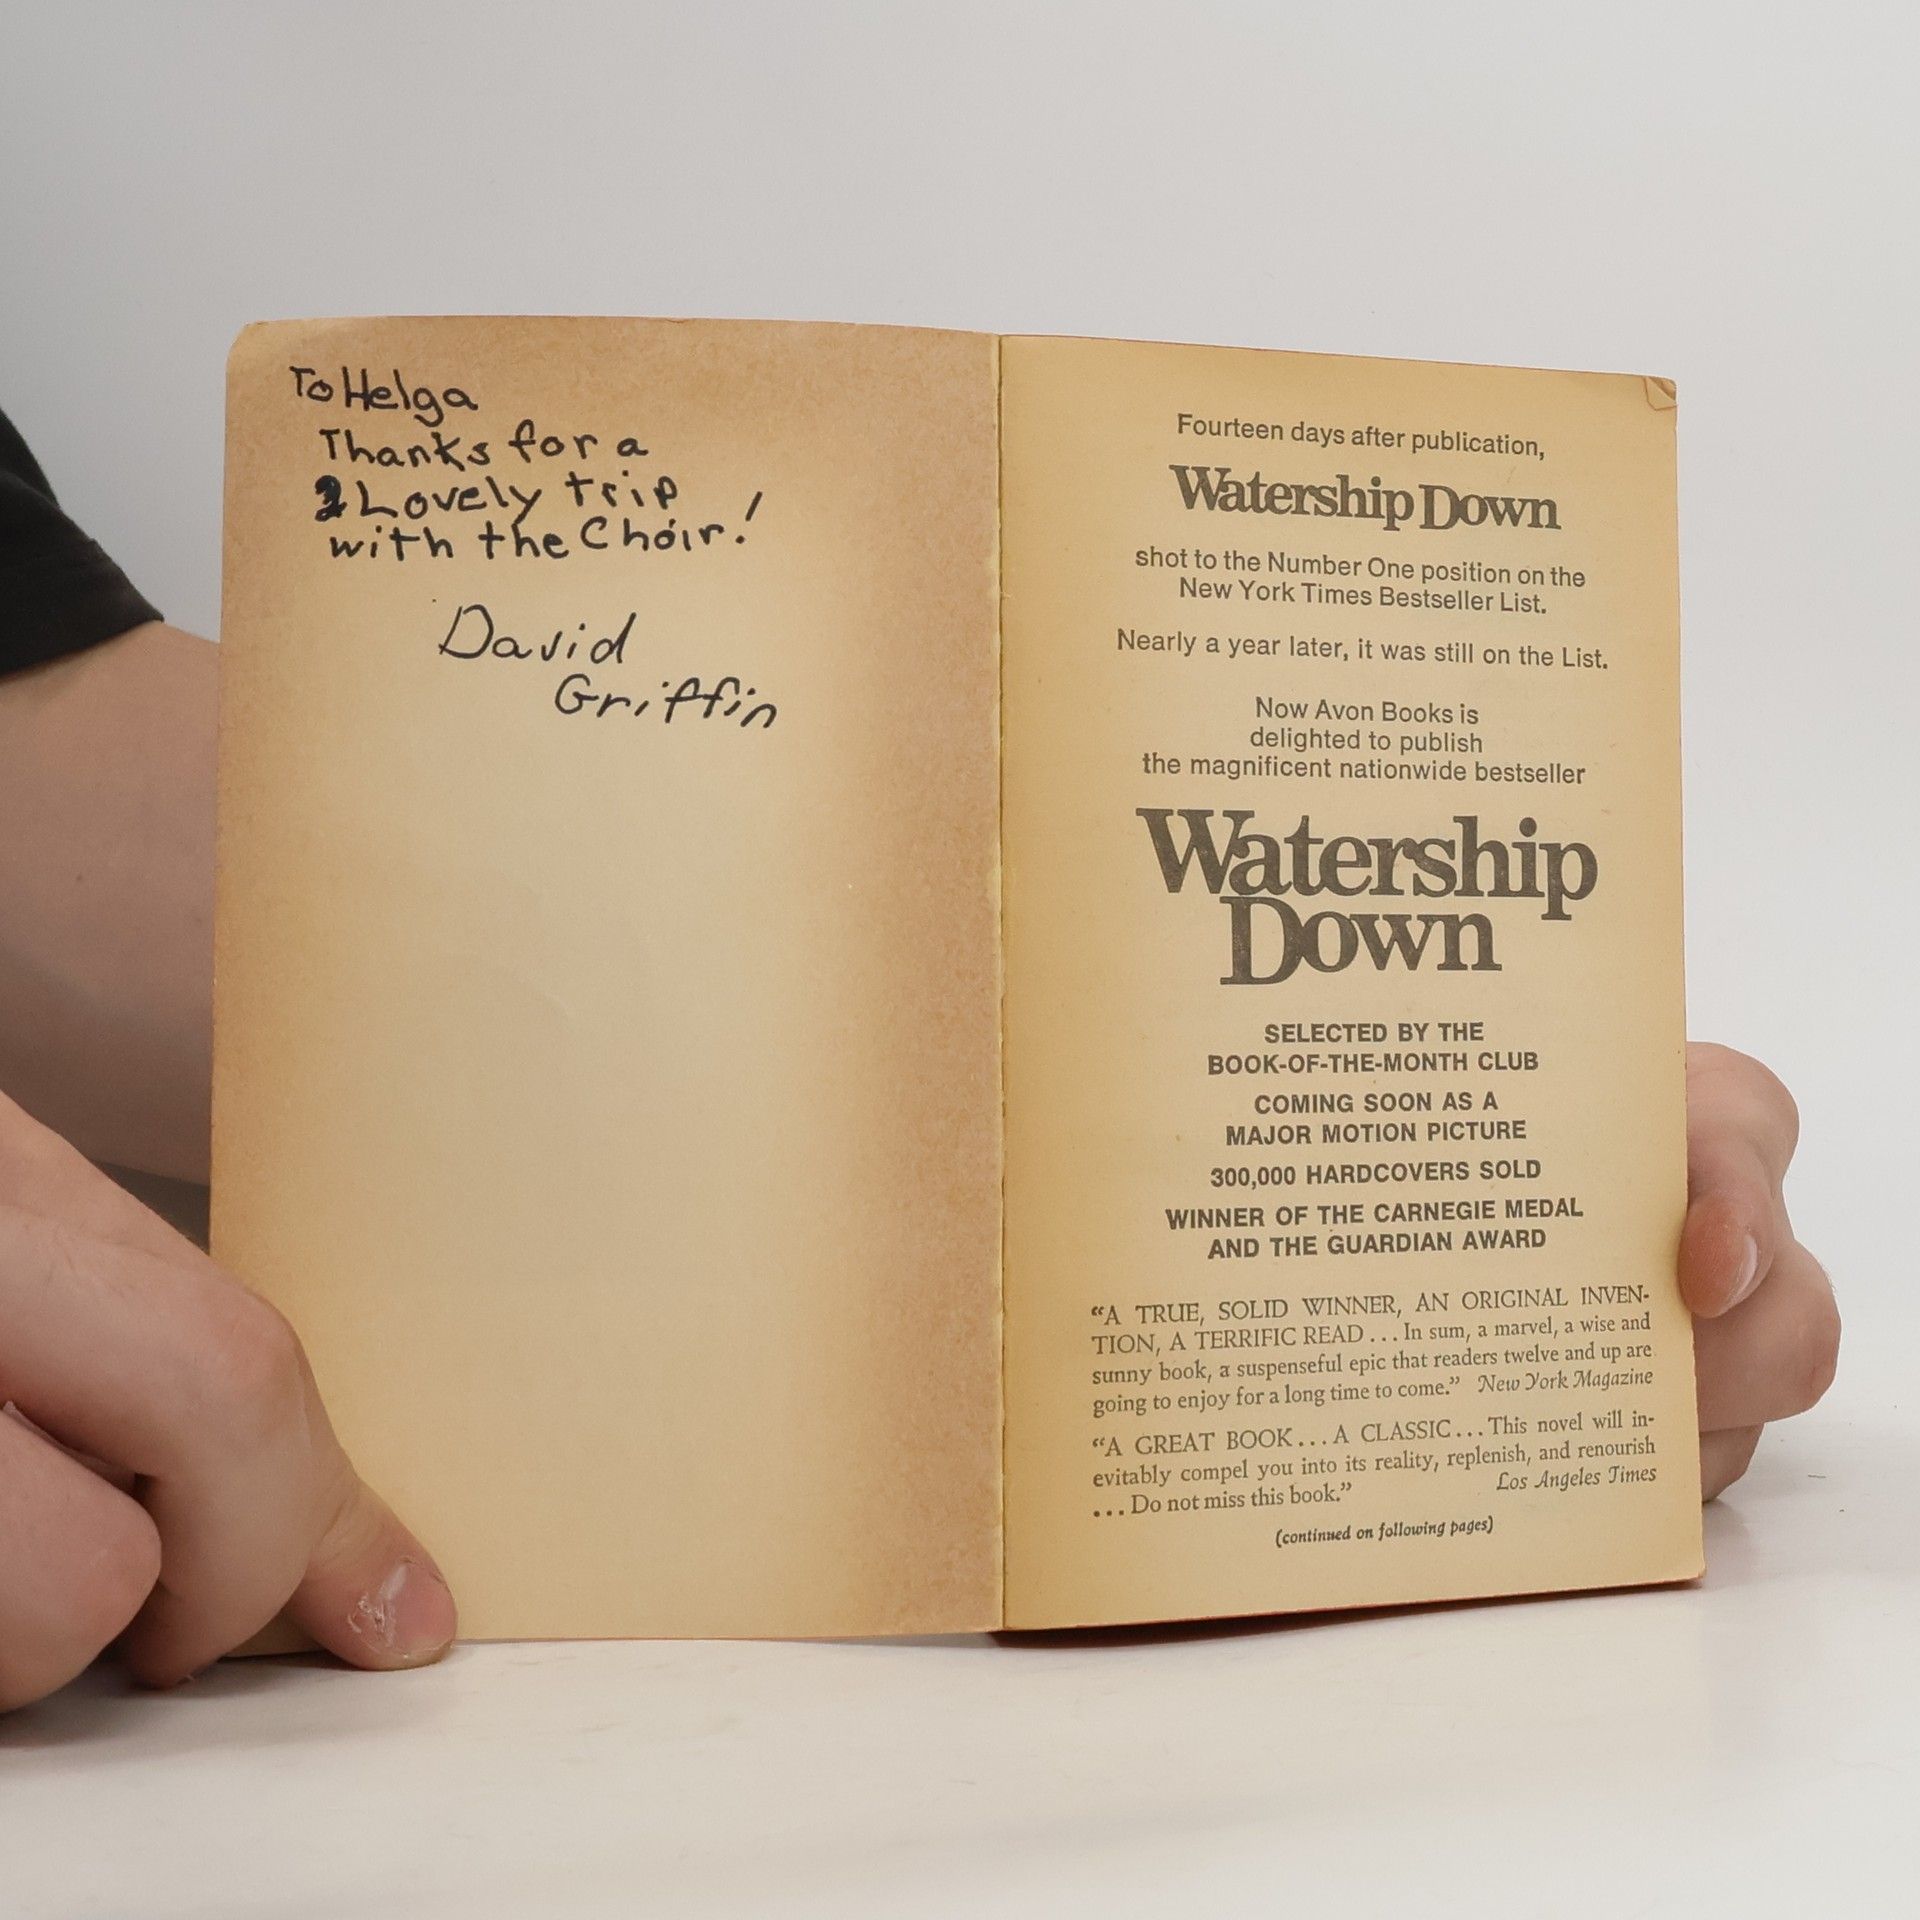 To Helga
Thanks for a
Lovely trip
with the Choir!
David
Griffin
Fourteen days after publication,
Watership Down
shot to the Number One position on the
New York Times Bestseller List.
Nearly a year later, it was still on the List.
Now Avon Books is
delighted to publish
the magnificent nationwide bestseller
Watership
Down
SELECTED BY THE
BOOK-OF-THE-MONTH CLUB
COMING SOON AS A
MAJOR MOTION PICTURE
300,000 HARDCOVERS SOLD
WINNER OF THE CARNEGIE MEDAL
AND THE GUARDIAN AWARD
“A TRUE, SOLID WINNER, AN ORIGINAL INVEN-
TION, A TERRIFIC READ . . . In sum, a marvel, a wise and
sunny book, a suspenseful epic that readers twelve and up are
going to enjoy for a long time to come.” New York Magazine
“A GREAT BOOK . . . A CLASSIC . . . This novel will in-
evitably compel you into its reality, replenish, and renourish
. . . Do not miss this book.” Los Angeles Times
(continued on following pages)